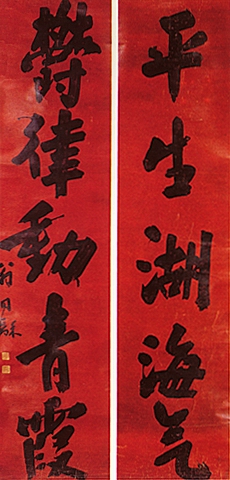 平生湖海气
欝律動青霞
翁同龢